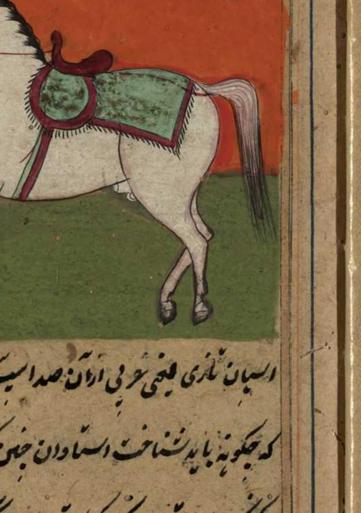 اسپان تازی یعنی عربی ازان صد اسپ
که چگونه باید شناخت استادان چنین